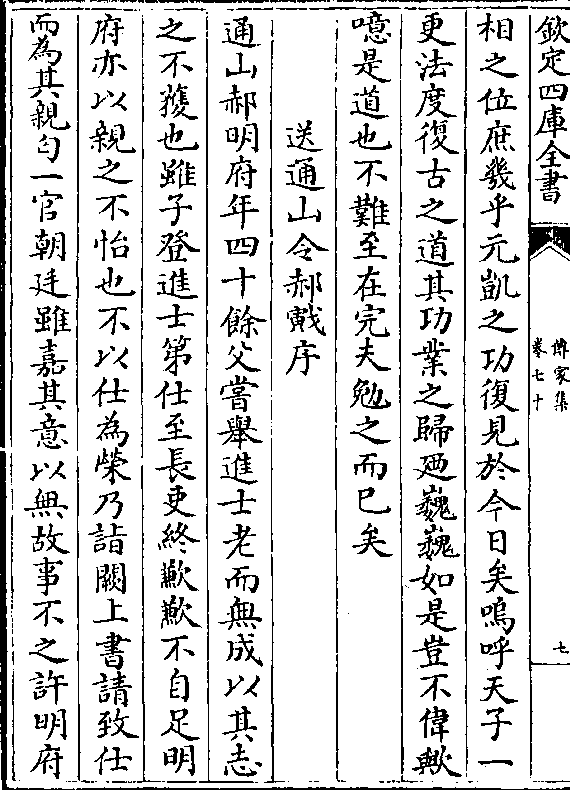 欽定四庫全書
傳家集
卷七十
七
相之位庶幾乎元凱之功復見於今日矣嗚呼天子一
更法度復古之道其功業之歸廼巍巍如是豈不偉歟
噫是道也不難至在完夫勉之而已矣
送通山令郝戭序
通山郝明府年四十餘父嘗舉進士老而無成以其志
之不獲也雖子登進士第仕至長吏終歉歉不自足明
府亦以親之不怡也不以仕為榮乃詣闕上書請致仕
而為其親匄一官朝廷雖嘉其意以無故事不之許明府